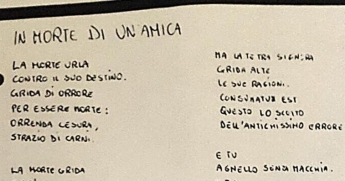 IN MORTE DI UN'AMICA
LA MORTE URLA
CONTRO IL SUO DESTINO.
GRIDA DI ORRORE
PER ESSERE MORTE:
ORRENDA CESURA,
STRAZIO DI CARNI.
LA MORTE GRIDA
MA LA TETRA SIGNORA
GRIDA ALTE
LE SUE RAGIONI.
CONSUMATUM EST
QUESTO LO SCEITO
DELL'ANTICHISSIMO ERRORE
E TU
AGNELLO SENZA MACCHIA.